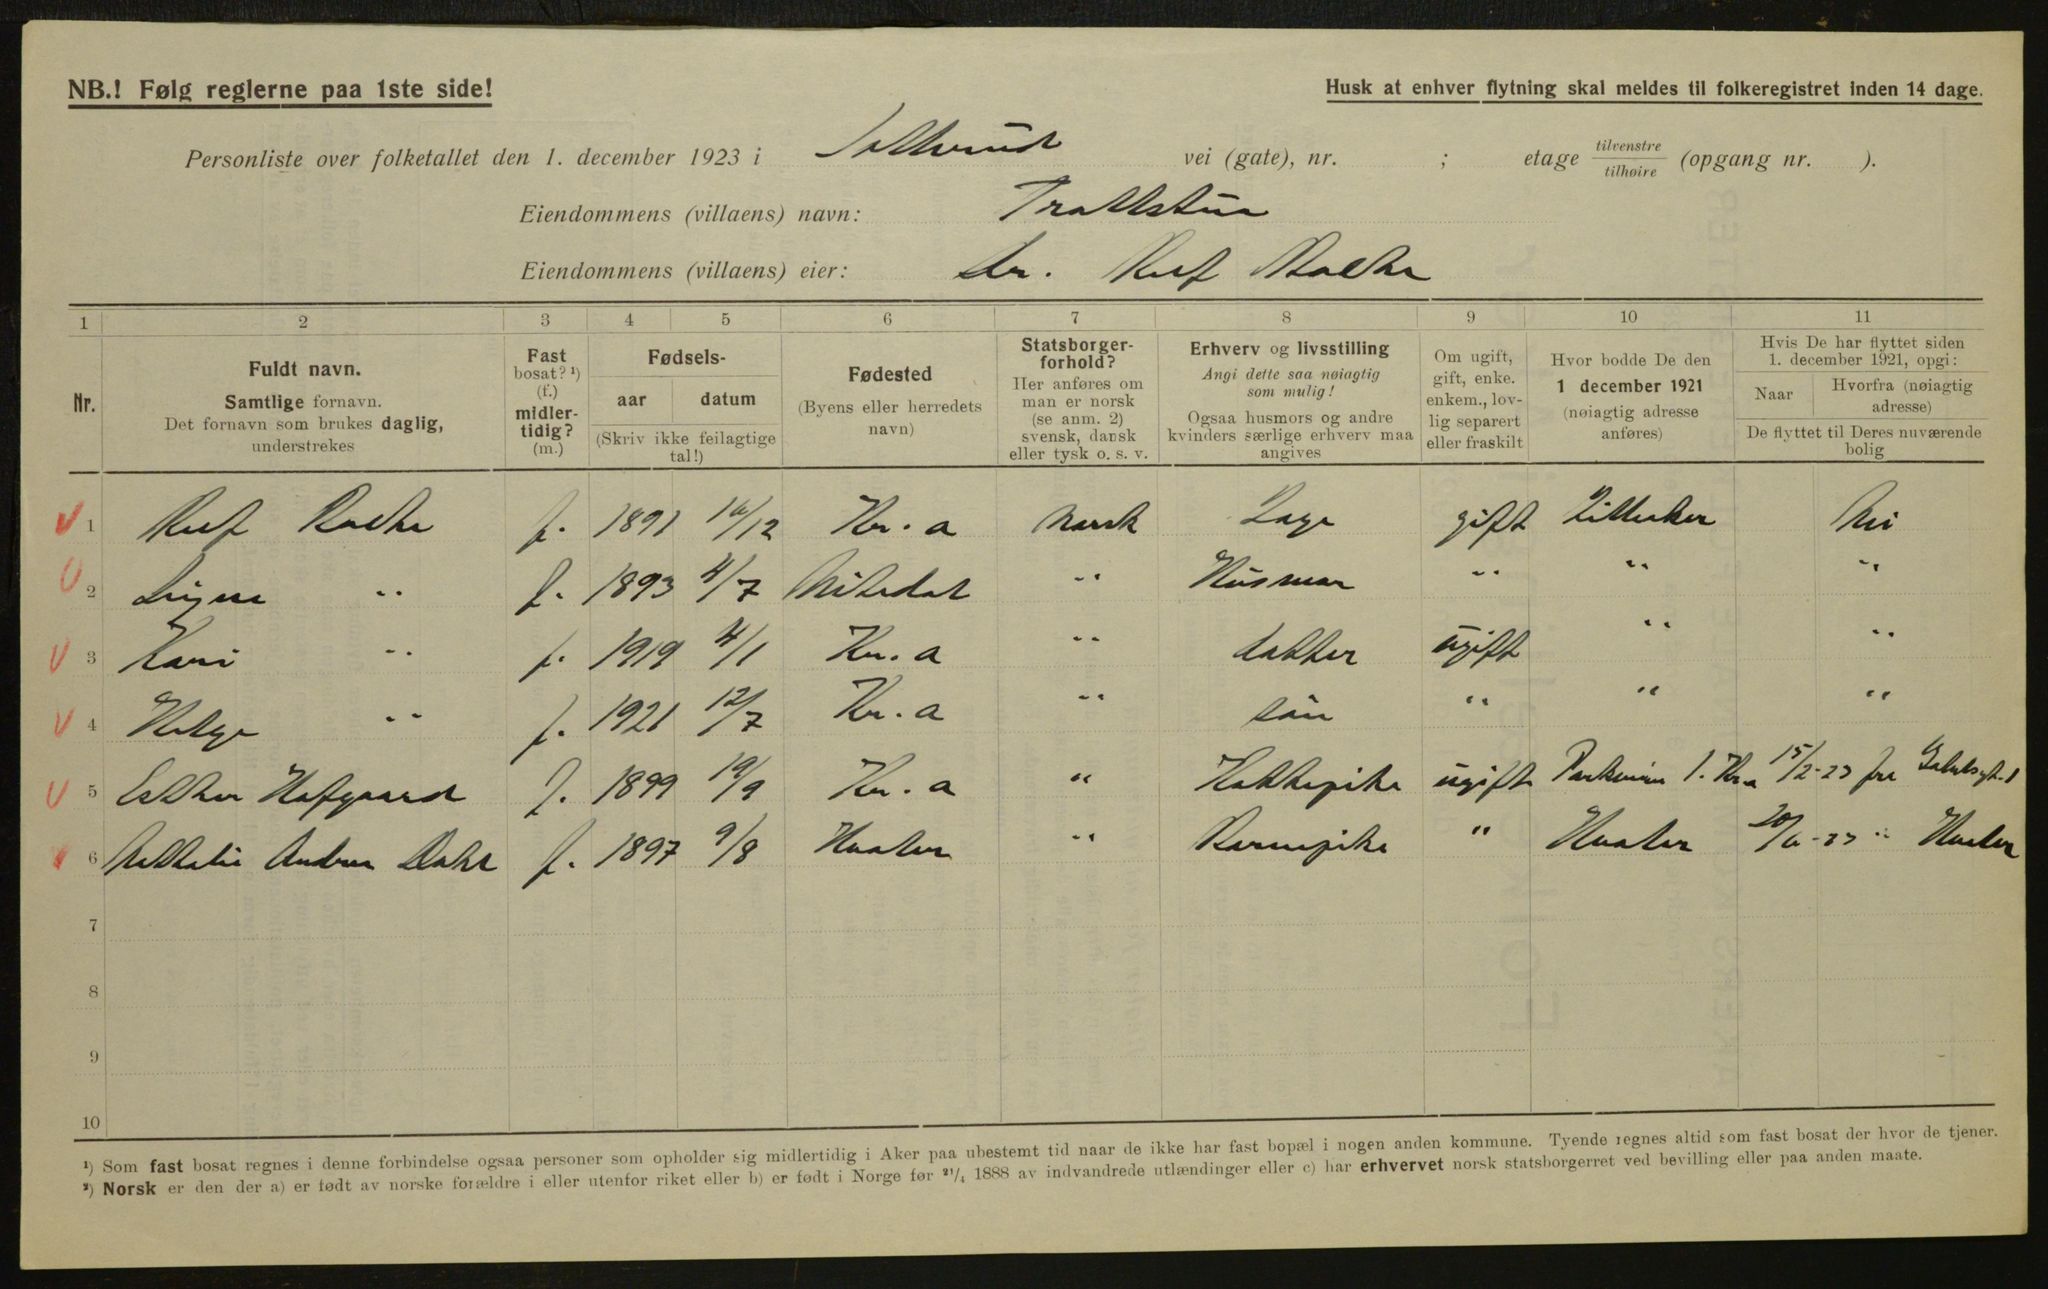 NB.! Følg reglerne paa 1ste side!
Husk at enhver flytning skal meldes til folkeregistret inden 14 dage.
Personliste over folketallet den 1. december 1923 i Sollerud vei (gate), nr. ; etage tilvenstre tilhøire (opgang nr. ).
Eiendommens (villaens) navn: Trollstua
Eiendommens (villaens) eier: Dr.
1 2 3 4 5 6 7 8 9 10 11
Nr.
Fuldt navn.
Samtlige fornavn.
Det fornavn som brukes daglig,
understrekes
Fast
bosat? ¹)
(f.)
midler-
tidig?
(m.)
Fødsels-
aar datum
(Skriv ikke feilagtige
tal!)
Fødested
(Byens eller herredets
navn)
Statsborger-
forhold?
Her anføres om
man er norsk
(se anm. 2)
svensk, dansk
eller tysk o. s. v.
Erhverv og livsstilling
Angi dette saa nøiagtig
som mulig!
Ogsaa husmors og andre
kvinders særlige erhverv maa
angives
Om ugift,
gift, enke.
enkem., lov-
lig separert
eller fraskilt
Hvor bodde De den
1 december 1921
(nøiagtig adresse
anføres)
Hvis De har flyttet siden
1. december 1921, opgi:
Naar Hvorfra (nøiagtig
adresse)
De flyttet til Deres nuværende
bolig
1 f. 1891 16/12 Kr.a norsk Læge gift Lilleaker
2 Signe " f. 1893 4/7 Nitedal " Husmor " " "
3 Kari " f. 1919 4/1 Kr.a " datter ugift " "
4 Helge " f. 1921 12/7 Kr.a " søn " " "
5 Esther Hofgaard f. 1899 19/9 Kr.a " Kokkepike ugift Parkveien 1. Kr.a 15/2-23 fra
6 Dahl f. 1897 9/8 Hvaler " Barnepike " Hvaler 20/6-23 " Hvaler
7
8
9
10
¹) Som fast bosat regnes i denne forbindelse ogsaa personer som opholder sig midlertidig i Aker paa ubestemt tid naar de ikke har fast bopæl i nogen anden kommune. Tyende regnes altid som fast bosat der hvor de tjener.
²) Norsk er den der a) er født av norske forældre i eller utenfor riket eller b) er født i Norge før ²¹/₄ 1888 av indvandrede utlændinger eller c) har erhvervet norsk statsborgerret ved bevilling eller paa anden maate.